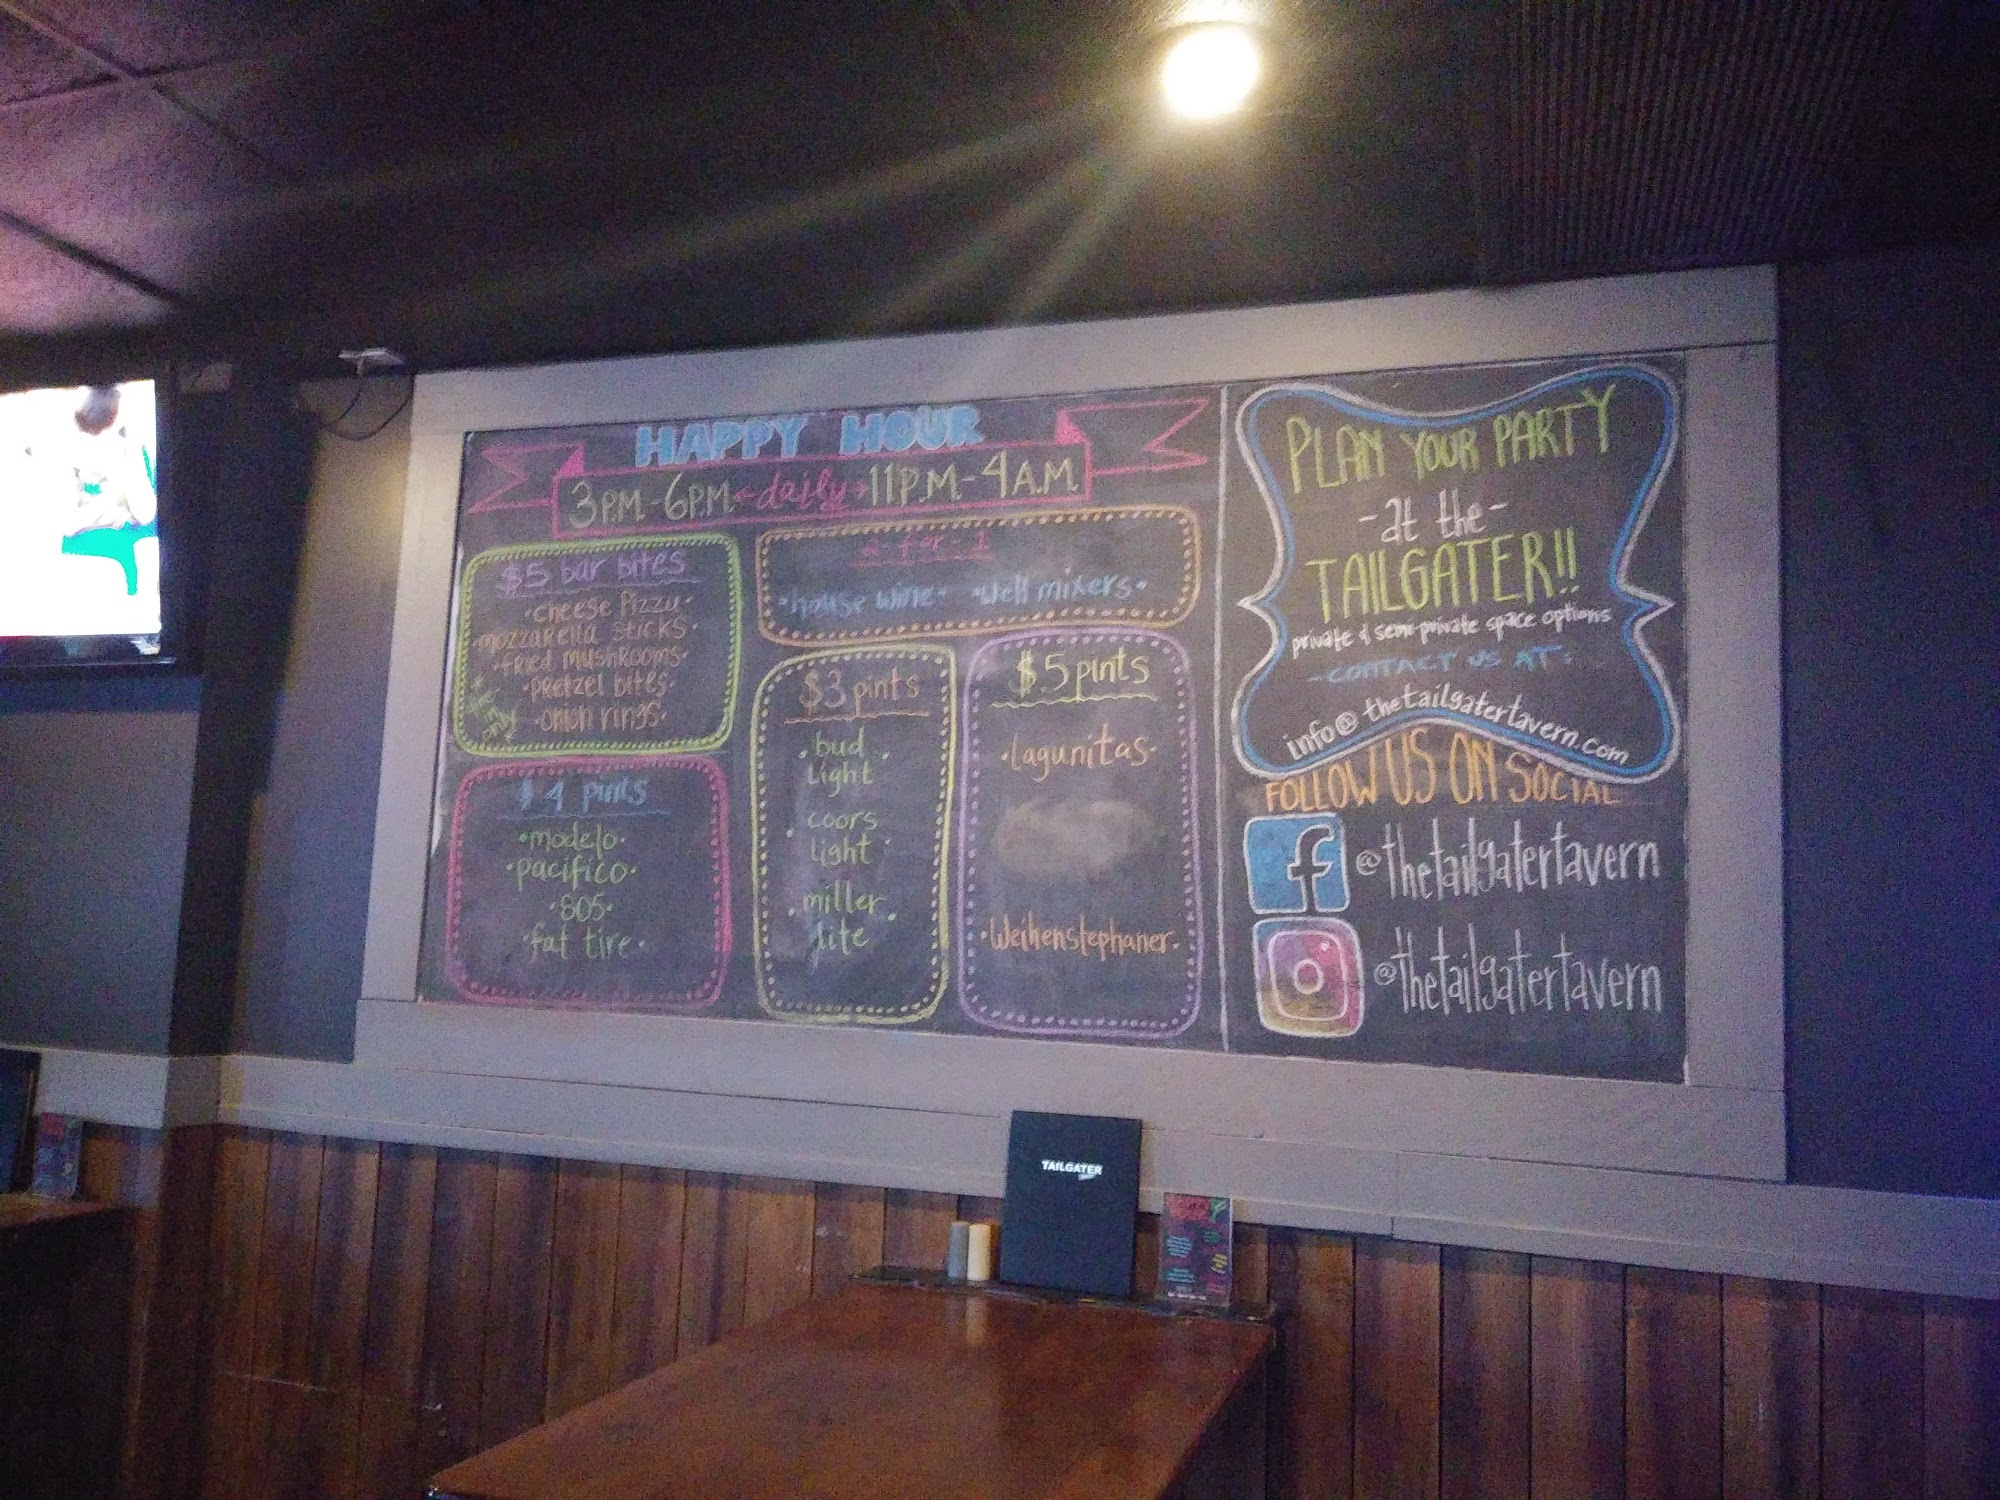 HAPPY HOUR
3 P.M. - 6 P.M. daily 11 P.M. - 4 A.M.
$5 bar bites
• cheese Pizza •
• mozzarella sticks •
• fried mushrooms •
• pretzel bites •
• onion rings •
only
2 - for - 1
• house wine • • well mixers •
$4 pints
• modelo •
• pacifico •
• 805 •
• fat tire •
$3 pints
• bud •
light
coors
• light •
• miller •
lite
$5 pints
• lagunitas •
• Weihenstephaner •
PLAN YOUR PARTY
- at the -
TAILGATER!!
private & semi-private space options
- CONTACT US AT:
info@thetailgatertavern.com
FOLLOW US ON SOCIAL
f @thetailgatertavern
@thetailgatertavern
TAILGATER